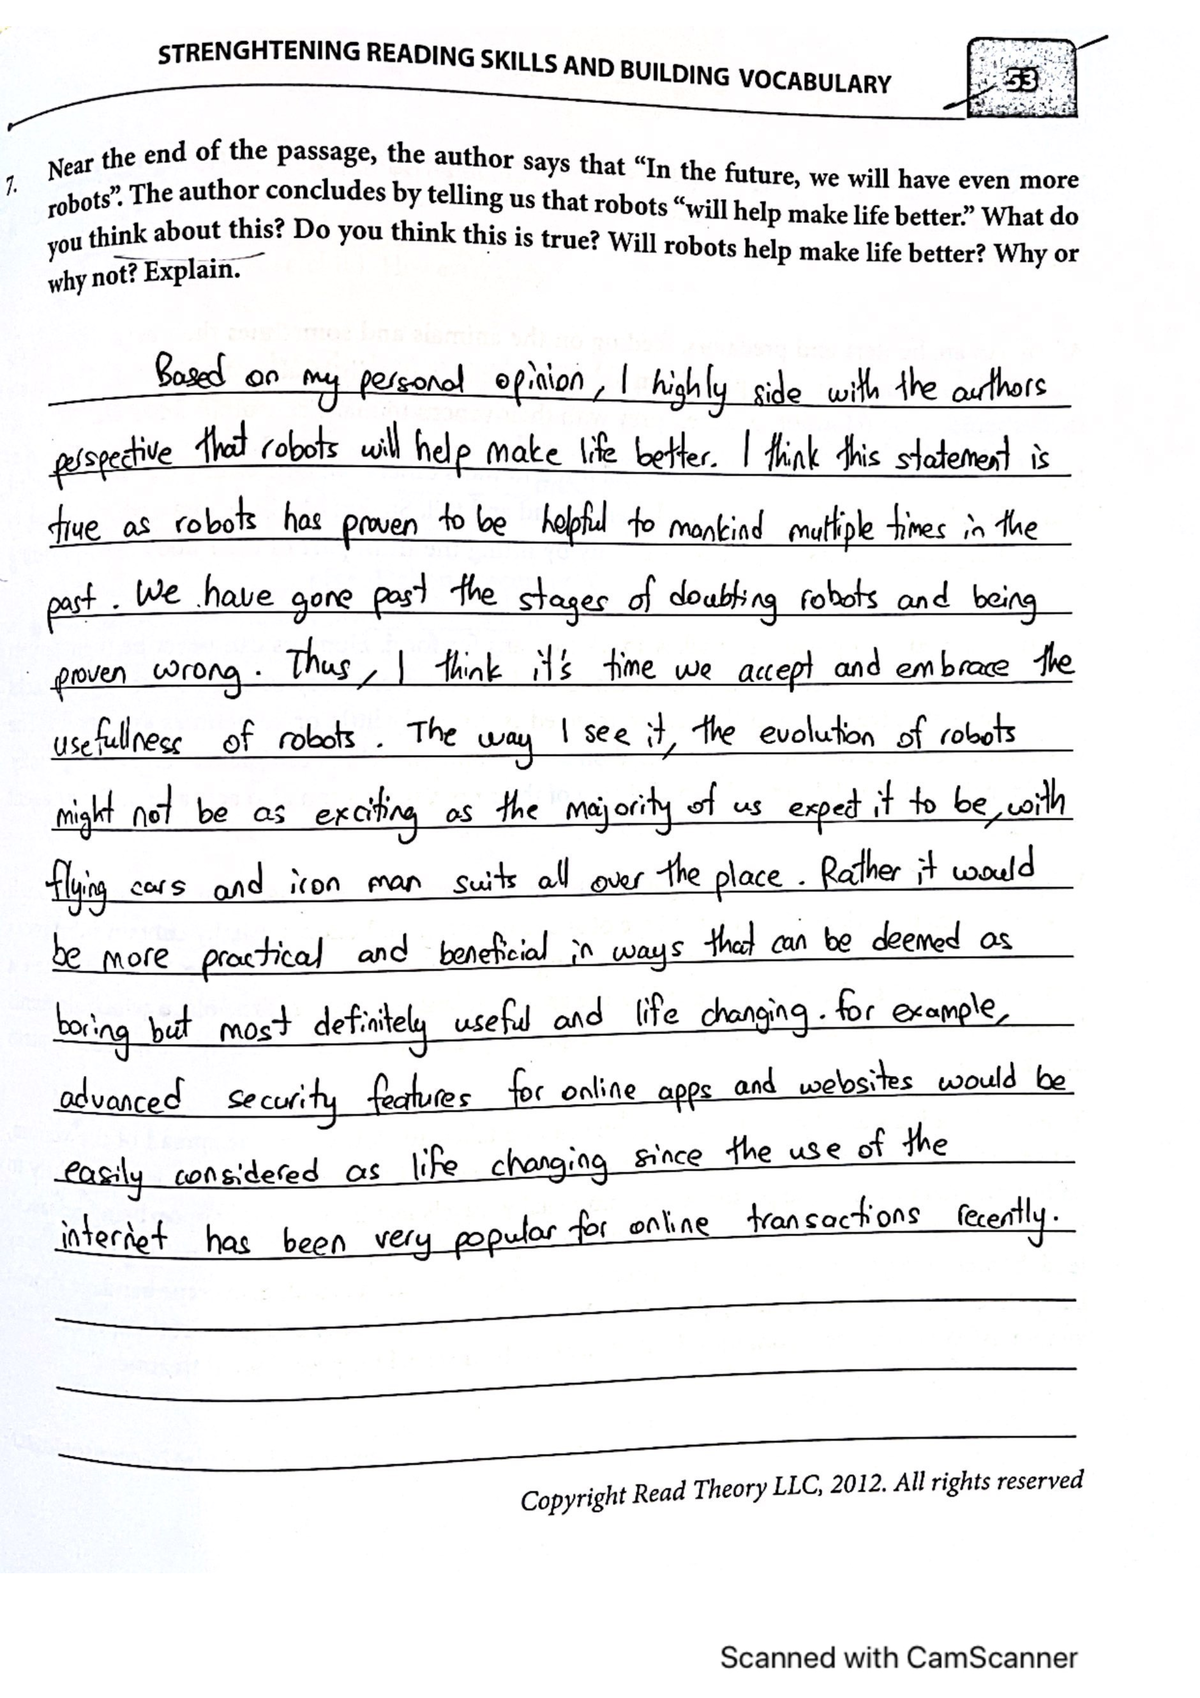 STRENGHTENING READING SKILLS AND BUILDING VOCABULARY
53
7. Near the end of the passage, the author says that “In the future, we will have even more
robots”. The author concludes by telling us that robots “will help make life better.” What do
you think about this? Do you think this is true? Will robots help make life better? Why or
why not? Explain.
Based on my personal opinion, I highly side with the authors
perspective that robots will help make life better. I think this statement is
true as robots has proven to be helpful to mankind multiple times in the
past. We have gone past the stages of doubting robots and being
proven wrong. Thus, I think it's time we accept and embrace the
usefullness of robots. The way I see it, the evolution of robots
might not be as exciting as the majority of us expect it to be, with
flying cars and iron man suits all over the place. Rather it would
be more practical and beneficial in ways that can be deemed as
boring but most definitely useful and life changing. for example,
advanced security features for online apps and websites would be
easily considered as life changing since the use of the
internet has been very popular for online transactions recently.
Copyright Read Theory LLC, 2012. All rights reserved
Scanned with CamScanner